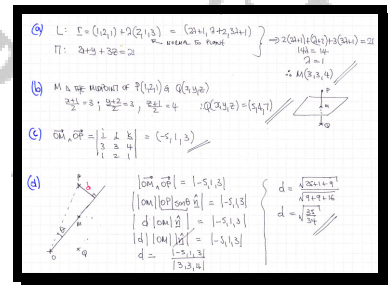 (a) L: r = (1,2,1) + λ(2,1,3) = (2λ+1, λ+2, 3λ+1)
NORMAL TO PLANE
Π: 2x+y+3z=21
→ 2(2λ+1)+(λ+2)+3(3λ+1)=21
14λ = 14
λ = 1
∴ M(3,3,4)
(b) M IS THE MIDPOINT OF P(1,2,1) & Q(x,y,z)
x+1/2 = 3 ; y+2/2 = 3 ; z+1/2 = 4 ∴ Q(x,y,z) = (5,4,7)
P
M
Q
(c) OM ∧ OP = | i j k | = (-5,1,3)
3 3 4
1 2 1
(d)
|OM ∧ OP| = |-5,1,3|
||OM||OP|sinθ n̂| = |-5,1,3|
|d|OM|n̂| = |-5,1,3|
|d||OM||n̂| = |-5,1,3|
d = |-5,1,3| / |3,3,4|
d = √25+1+9 / √9+9+16
d = √35/34
P
d
M
θ
O
Q